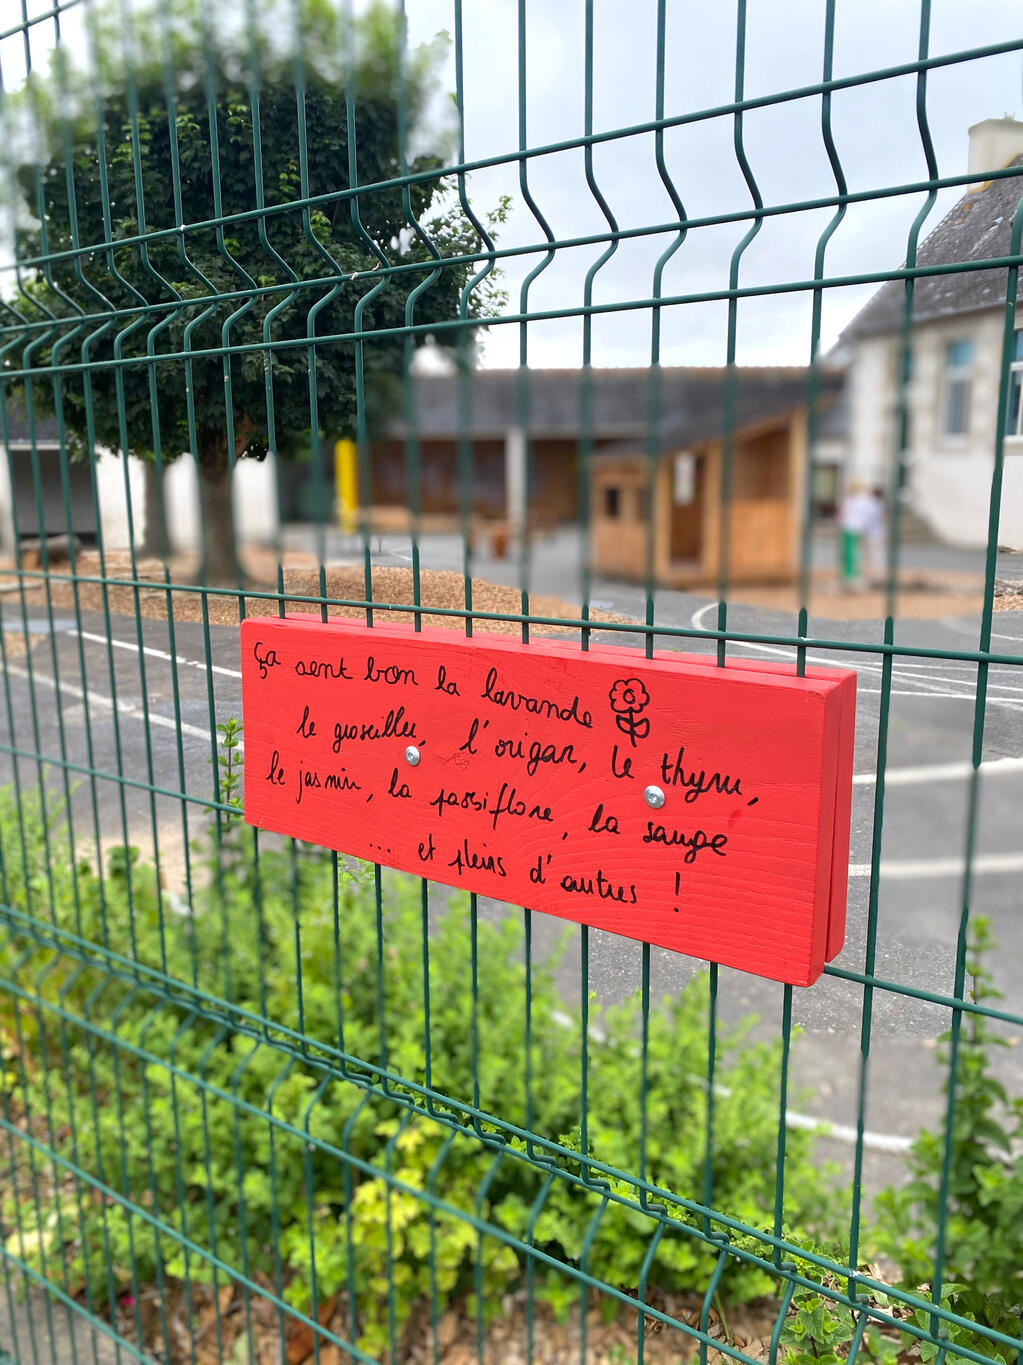 Ça sent bon la lavande
le groseiller, l'origan, le thym,
le jasmin, la passiflore, la sauge
... et pleins d'autres !